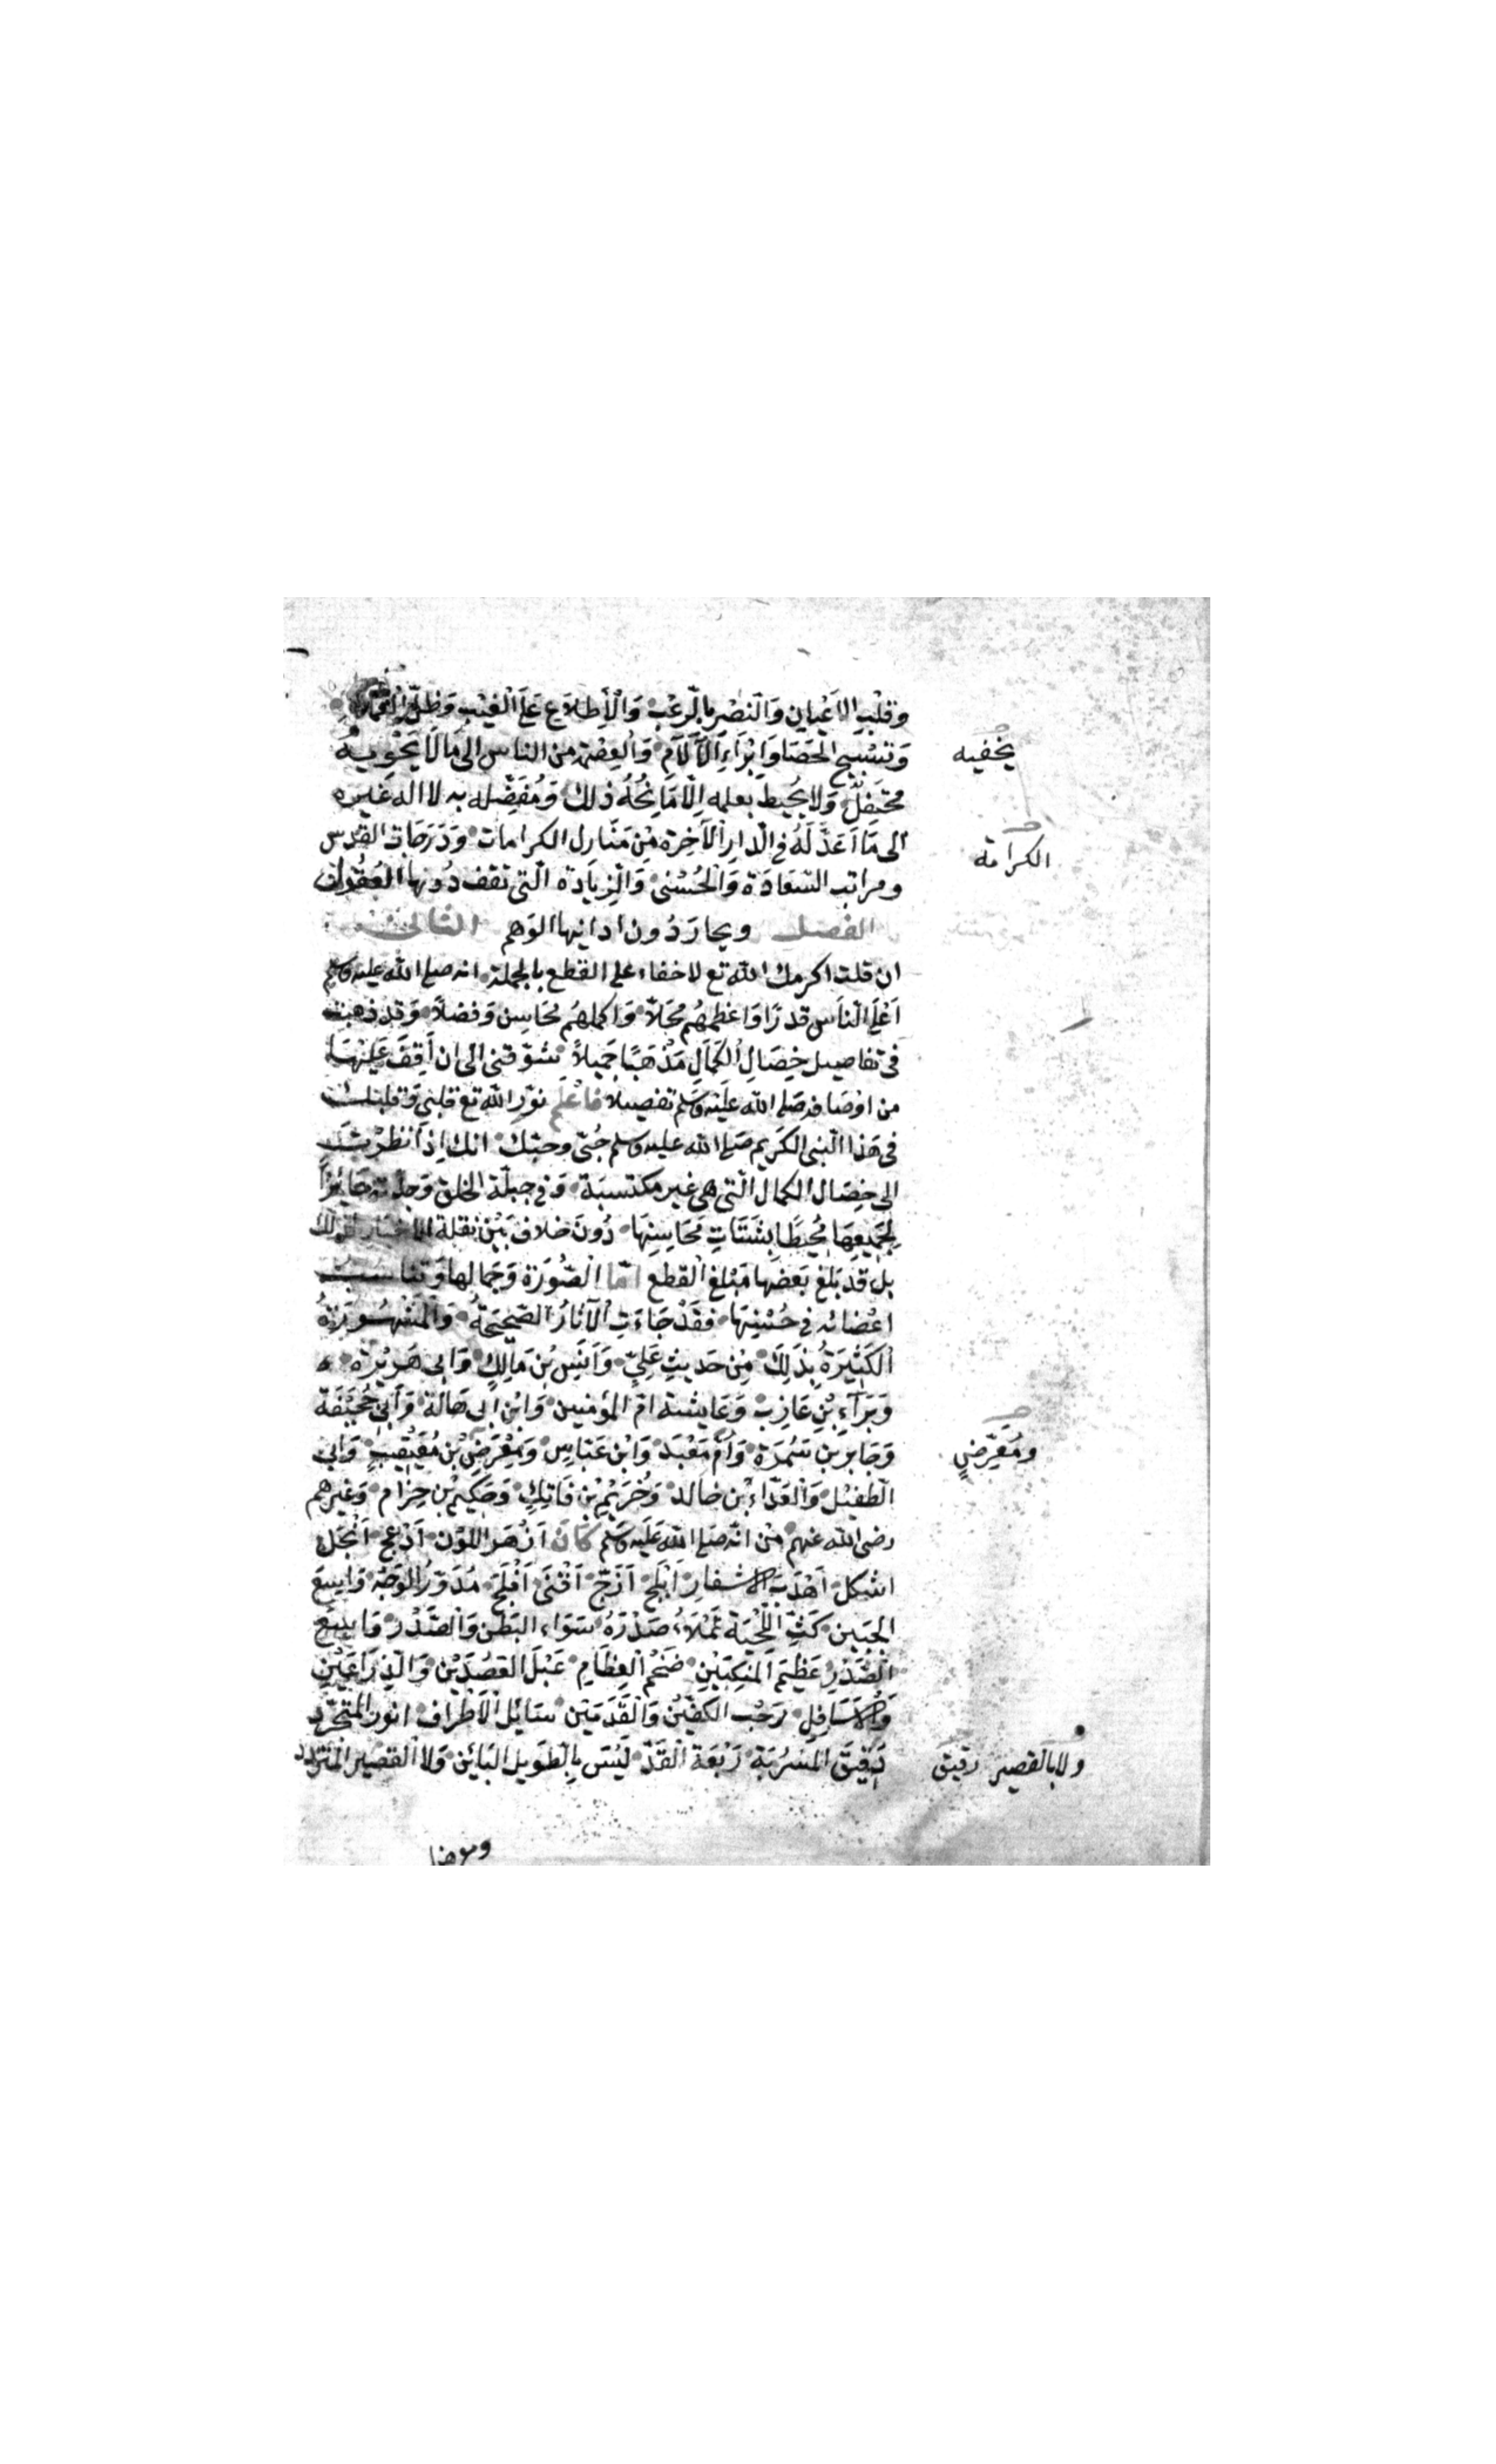 وقلْبِ الاَعْيانِ وَالنَصْرِ بالرعْبِ وَالْاِطِلَاع عَلَى الغَيْبِ وَظِلّ الغَمَام
وَتَسْبيح الحَصَا وَاِبْرَاءِ الآلَام وَالعِصْمَة من الناس الى مَا لَا يَحْوِيهُ
يخفيه
محتَفِلٌ وَلا يُحيط بعلمه اِلّا مَانِحُهُ ذلك وَمُفَضِّله به لا اله غيره
الى مَا اَعَدَّ لَهُ في الدارِ الآخِرة مِنْ مَنَازِل الكرامات وَدَرَجات القُدْس
الكرامة
ومراتب السَعَادَة وَالْحُسْنى وَالزِيَادَة الّتى تقف دُونها العُقُول
ويحار دُون ادانيها الوَهم
الفصل الثانى
ان قلت اكرمك الله تع لا خفاء على القطع بالجملة انه صلى الله عليه وسلم
اَعْلَى الناس قدرًا وَاعظمهُم مَحَلّاً وَاكملهُم مَحَاسِن وَفضلاً وَقد ذهبت
فى تفاصيل خِصَالِ الكَمَالِ مَذْهَبًا جَميلاً شوّقنى الى ان اَقِفَ عَلَيْهَا
من اوْصَافه صَلى الله عَلَيْه وَسَلم تفصيلا فاعْلَم نوّر الله تع قلبى وَقلبك
فى هَذا النبى الكَريم صَلى الله عليه وسلم حُبّى وحبّك انك اِذا نظرْتَ
الى خِصَال الكمال الّتى هى غير مكتسبَة وَفى جبلّة الخلق وَجدْته حَائِزًا
لِجَميعِهَا مُحيطًا بِشَتَاتِ مَحَاسِنِهَا دُونَ خلاف بَيْن نقلة الاخبار لذلك
بل قد بَلغ بَعضها مَبْلغ القطع امّا الصُورَة وَجَمَالها وَتناسب
اعْضائه فى حُسْنِهَا فقَدْ جَاءَتِ الآثارُ الصَحِيحَةُ وَالمَشهُورَةُ
الكَثِيرَةُ بِذلِكَ مِنْ حَديثِ عَلِىّ وَاَنَسِ بْنِ مَالِكٍ وَابى هَرَيْرة
وَبَرَآءِ بْنِ عَازِبْ وَعَايشة امّ المؤمنين وَابْن ابى هَالَة وَاَبِى جُحَيْفَة
وَجَابِر بن سَمُرَة وَاُمّ مَعْبَد وَابْن عَبَّاس وَمِعْرَضِ بْن مُعَيْقِيب وَابى
ومُعَرِّضٍ
الطفيْل وَالعَدَّاء بْن خالد وَخُرَيْم بْن فَاتِكٍ وَحَكيم بْن حِزام وَغيرهم
رضى الله عنهم مْن انّه صَلى الله عَلَيه وَسَلم كَانَ اَزْهَر اللوْن اَدْعج اَنجَل
اشكل اَهْدَبَ الاشفارِ اَبْلَج اَزَجّ اَقْنَى اَفْلَجَ مُدَوّرُ الوَجْهِ وَاسِعَ
الجَبَين كَثّ اللّحْيَة تَمْلَأُ صَدْرَهُ سَوَاء البَطن وَالصَدْر وَاسِعَ
الصَدْرِ عَظيَم المَنكِبَيْنِ ضَخْمَ العِظَامِ عَبْلَ العَضُدَيْن وَالذِرَاعَيْن
وَالاَسَافِل رَحْبَ الكَفيّن وَالْقَدَمَيْن سَايَل الاَطْراف انور المتجَرّد
دَقِيقَ المَسْرُبَة رَبْعَة القَدّ لَيْسَ بِالطَويل البَائِن وَلا القصير المُتَرَدد
ولا بالقصير رقيق
وموضا